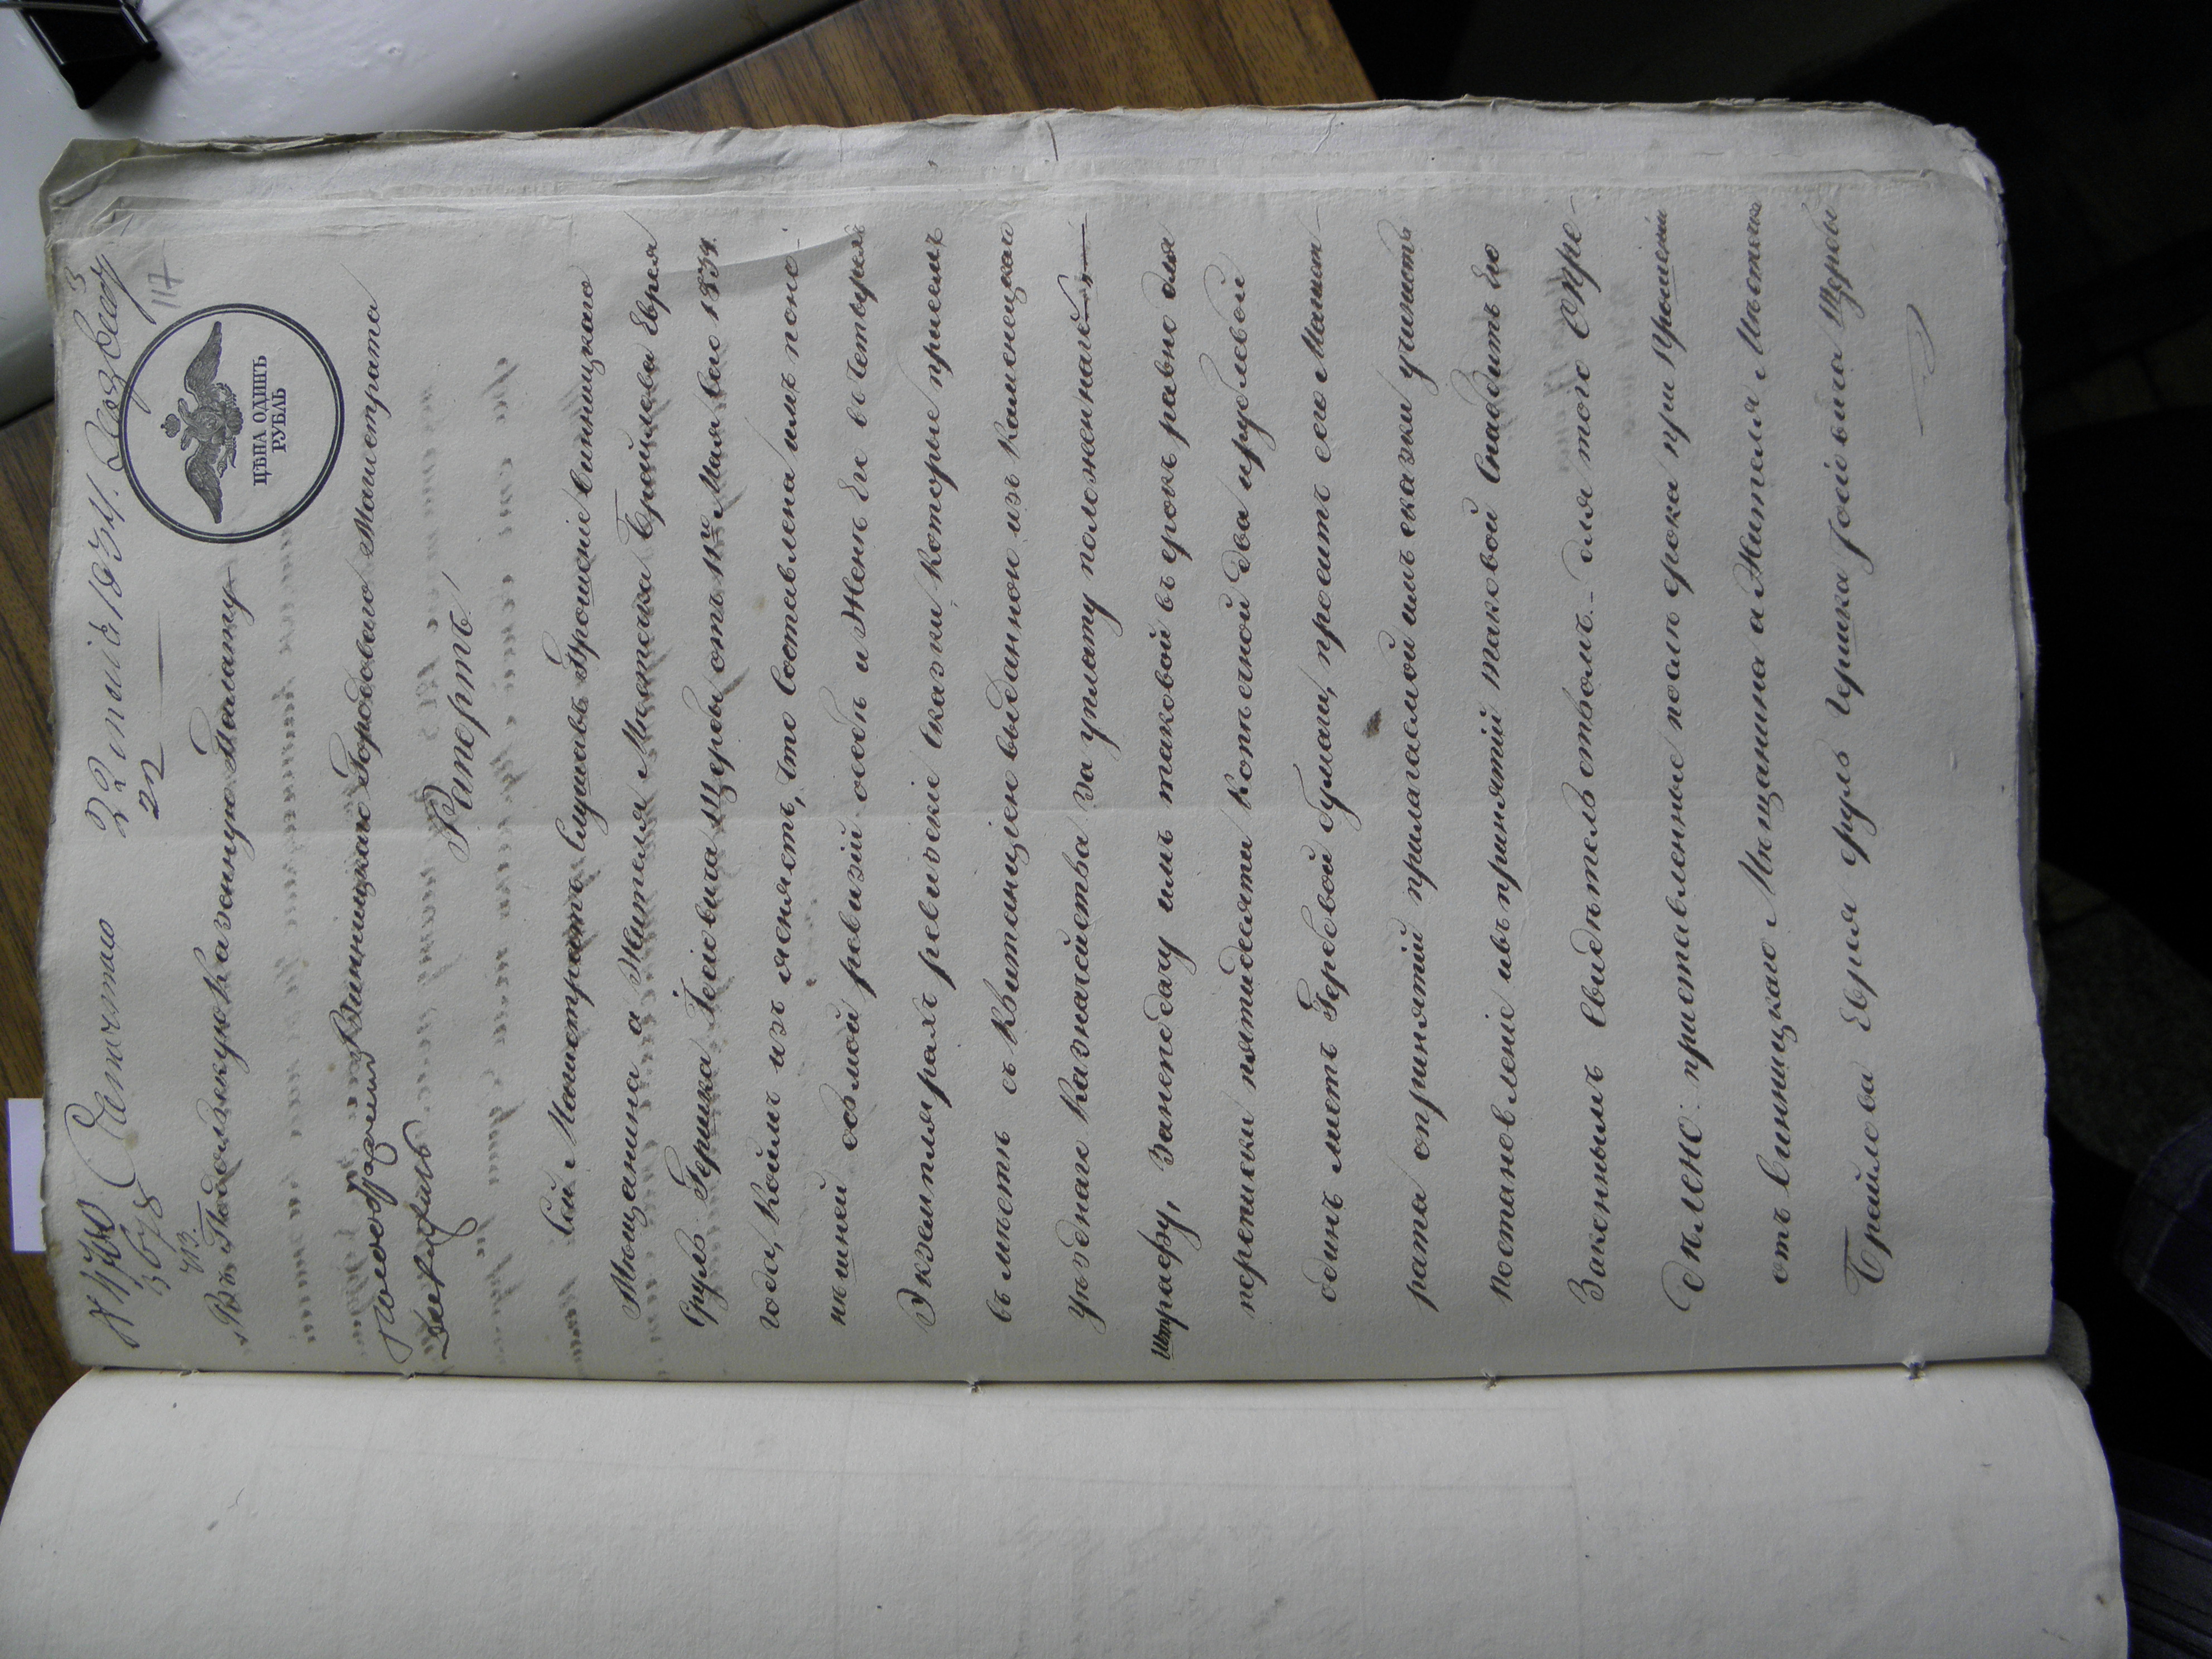 22 июля 1834.
22
117
№ 4780
3678
ЦѢНА ОДИНЪ
РУБЛЬ
Въ Подольскую Казенную Палату
Винницкаго Городоваго Магистрата
Рапортъ,
Сей Магистратъ Слушавъ Прошеніе Винницкаго
Мѣщанина а Жителя Мѣстечка Браилова Еврея
Сруль Гершка Іосіовича Щербы отъ 11го Мая сего 1834.
года, коимъ изъясняетъ, что Составлена имъ поне
нѣшней осьмой ревизіи особѣ и Женѣ Его въ Четырехъ
Экземплярахъ ревизскіе Сказки которые приемъ
вѣ мѣстѣ съ Квитанціею выданною изъ Каменецкаго
Уѣзднаго Казначейства за уплату положеннаго
Штрафу, Занеподачу имъ таковой въ срокъ равно для
переписки пятидесяти Копѣечной два и рублевой
одинъ листъ Гербовой бумаги, проситъ сего Магист-
рата опринятіи прилагаемой имъ сказки учинить
постановленіе ивъ принятіи таковой Снабдить Его
Законнымъ Свидѣтельствомъ. - для того Опре-
дѣлено: приставленные послѣ срока при Прошеніи
отъ Винницкаго Мѣщанина а Жителя Мѣстечка
Браилова Еврея Сруль Гершка Іосіовича Щербы